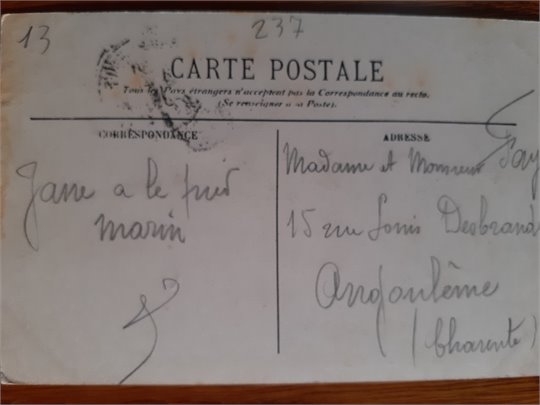 13
237
CARTE POSTALE
Tous les Pays étrangers n'acceptent pas la Correspondance au recto.
(Se renseigner à la Poste).
CORRESPONDANCE
Jane a le pied
marin
ADRESSE
Madame et Monsieur
15 rue Louis Desbrandes
Angoulême
(Charente)